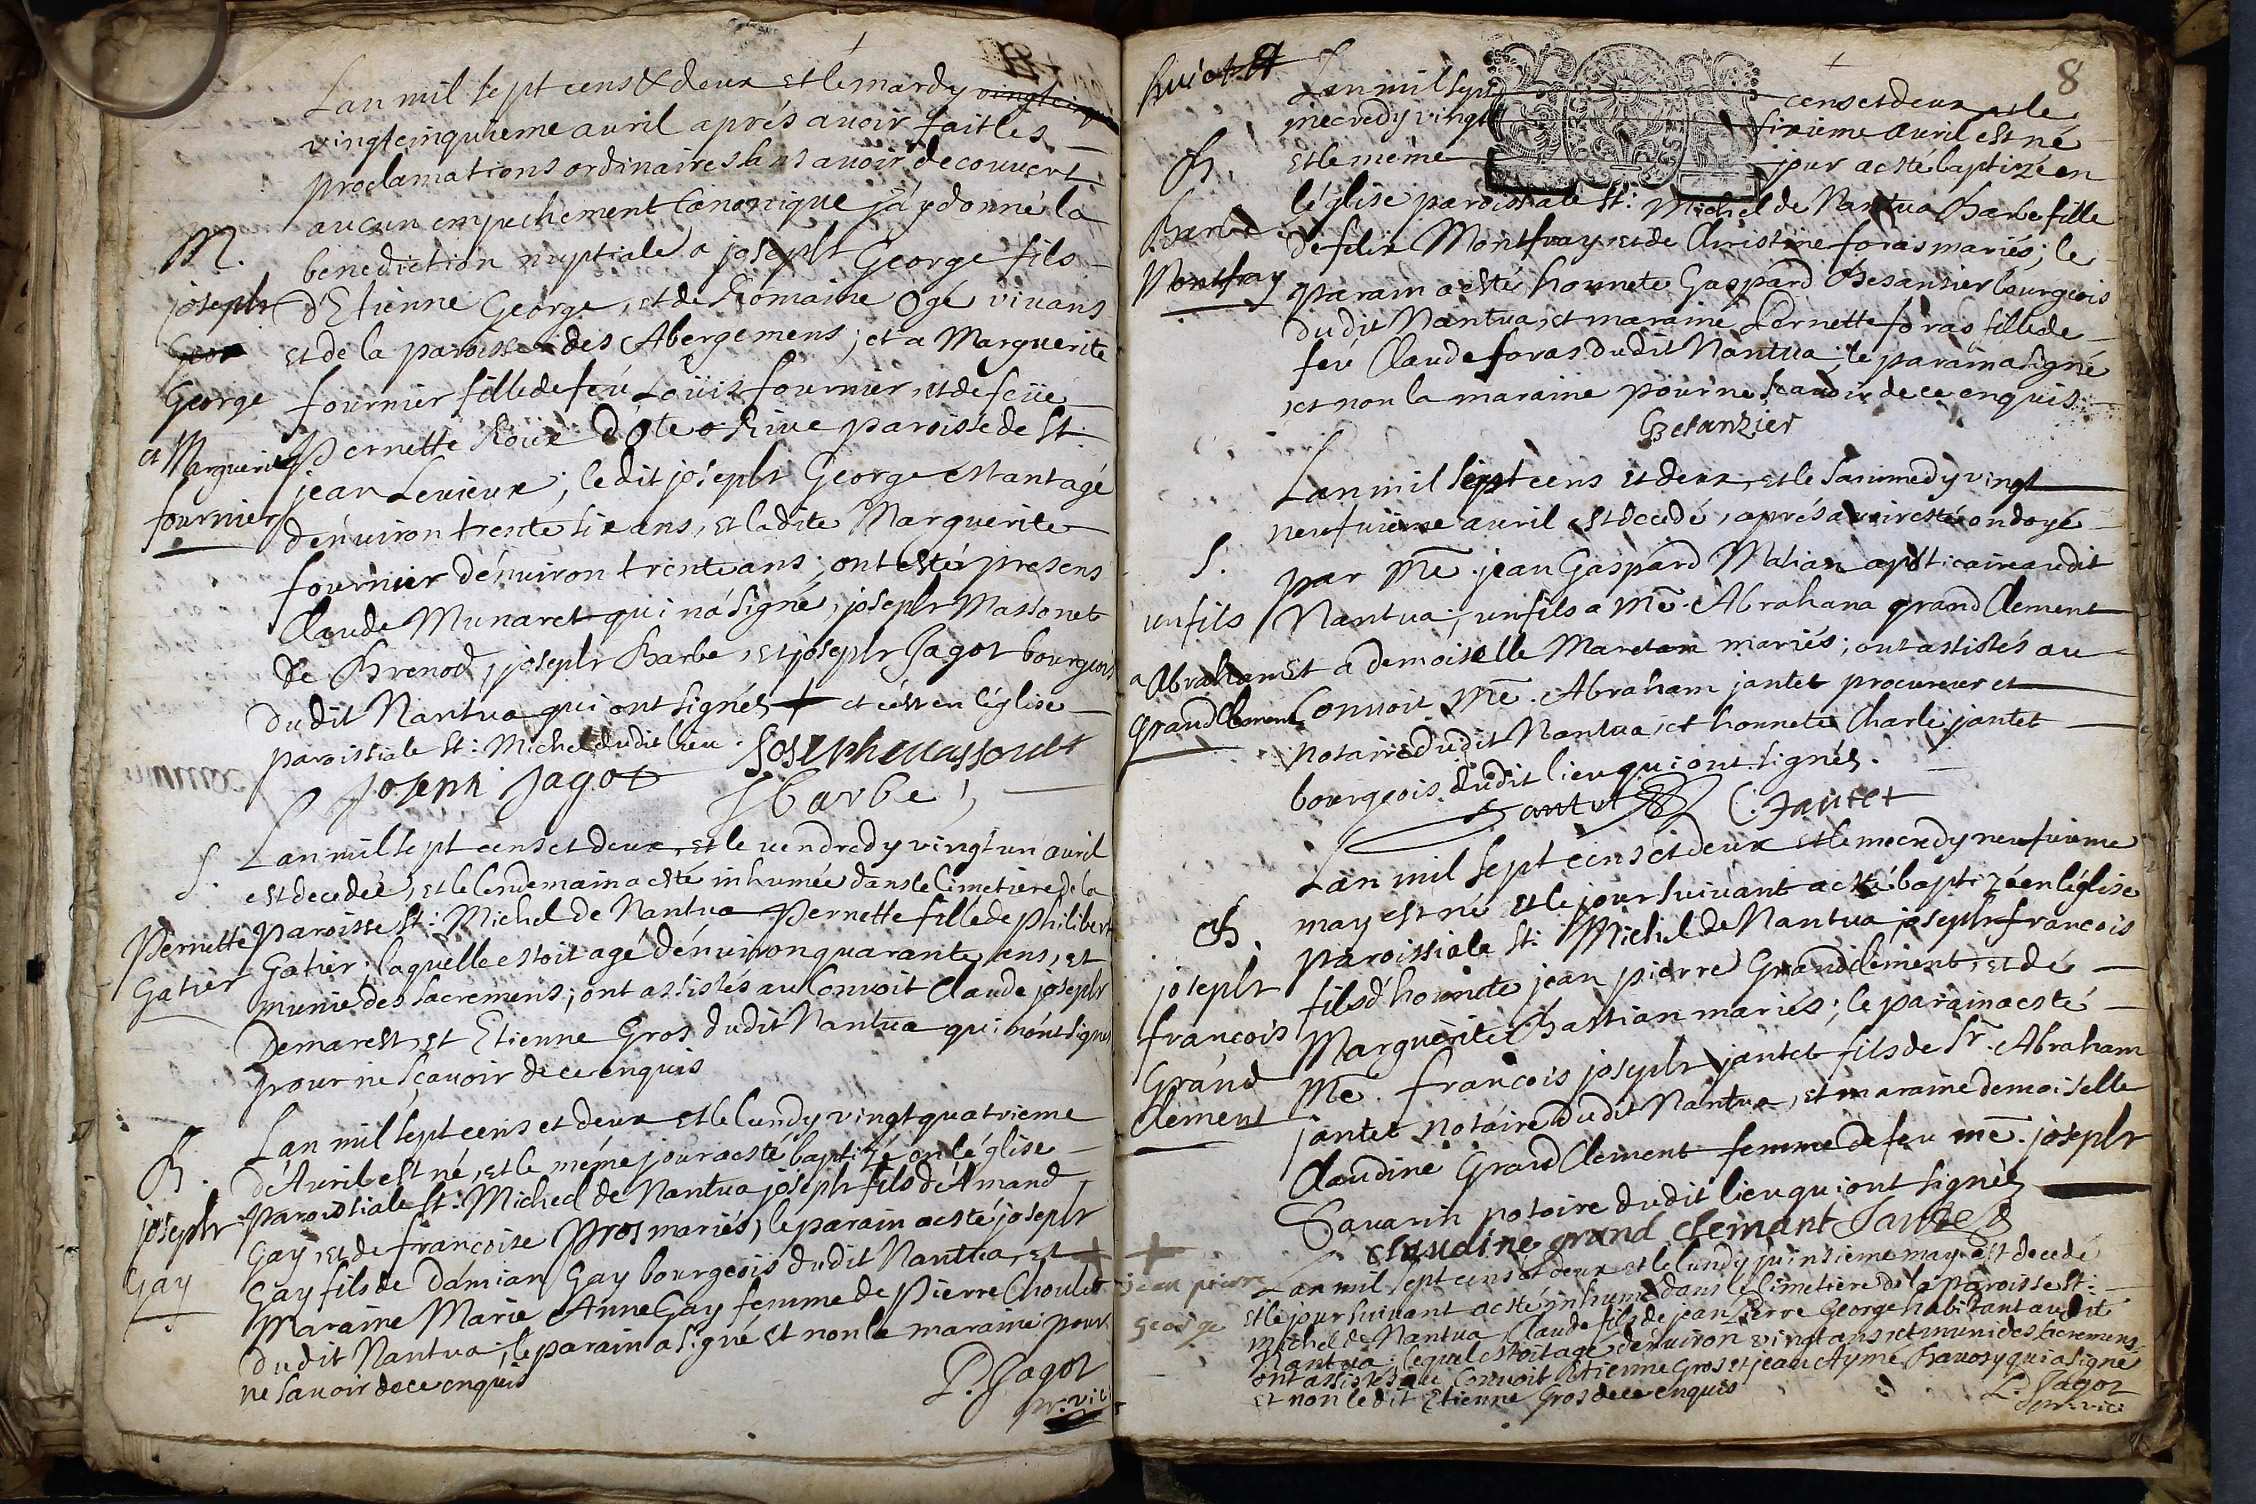 Lan mil sept cens & deux et le mardy vingtcinq
vingtcinquieme avril aprés avoir fait les
proclamations ordinaires sans avoir decouvert
aucun empechement Canonique jáy donné la
M.
benediction nuptiale a joseph George fils
joseph
d'Etienne George, et de Romaine Ogé vivans
Geor
et de la paroisse des Abergemens; et a Marguerite
George
fournier fille de feú Loüis fournier, et de feüe
Pernette Roux d'ôte Rive paroisse de St:
et Marguerite
jean Levieux; ledit joseph George estant agé
fournier
dénuiron trente six ans, et ladite Marguerite
fournier dénuiron trente ans; ont estés presens
Claude Munaret qui ná signé, joseph Massonet
de Brenod, joseph Barbe, et joseph Jagot bourgeois
dudit Nantua qui ont signés + et cést en léglise
paroissiale St: Michel dudit lieu. Joseph massonet
joseph Jagot J barbe
Lan mil sept cens et deux, et le vendredy vingt un avril
S.
est decedée, et le lendemain a esté inhumée dans le Cimetiere de la
Pernette
paroisse St: Michel de Nantua Pernette fille de philibert
Gatier
Gatier; laquelle estoit agé dénuiron quarante ans, et
munie des sacremens; ont assistés au Convoit Claude joseph
Demarest, et Etienne Gros dudit Nantua qui nónt signes
pour ne sçavoir de ce enquis
Lan mil sept cens et deux et le lundy vingt quatrieme
B.
d'Avril est né, et le méme jour a esté baptizé en léglise
joseph
paroissiale St: Michel de Nantua joseph fils d'Amand
Gay
Gay, et de françoise Pros mariés, le parain a esté joseph
Gay fils de Dámian Gay bourgeois dudit Nantua, et
Maraine Marie Anne Gay femme de Pierre Choulet
dudit Nantua; le parain a signé et non la maraine pour
ne savoir de ce enquis
P. Jagot
pr. vic.
huict
8
Lan mil sept cens et deux et le
mecredy vingt sixiéme avril est né
B.
et le meme jour a esté baptizé en
Barbe
léglise paroissiale St: Michel de Nantua Barbe fille
Montfray
de felix Montfray et de Christine foras mariés; le
parain a esté honnete Gaspard Besanzier bourgeois
dudit Nantua, et maraine Pernette foras fille de
feu Claude foras dudit Nantua; le parain a signé
et non la maraine pour ne sçavoir de ce enquis
Besanzier
Lan mil sept cens et deux, et le sammedy vingt
neufuieme avril est decedé, aprés avoir esté ondoyé
S.
par Me. jean Gaspard Malian apoticaire audit
un fils
Nantua; un fils a Me. Abraham grand Clement
a Abraham
et a demoiselle Maretan mariés; ont assistés au
grand Clement
Convoit Me. Abraham jantet procureur et
notaire dudit Nantua, et honnete Charle jantet
bourgeois dudit lieu qui ont signés.
Jantet C. Jantet
Lan mil sept cens et deux et le mecredy neufuieme
may est né et le jour suivant a esté baptizé en léglise
B.
paroissiale St: Michel de Nantua joseph francois
joseph
fils d'honnete jean pierre Grand clement, et de
françois
Marguerite Bastian mariés; le parain a esté
Grand
Me. françois joseph jantet fils de Sr. Abraham
Clement
jantet notaire dudit Nantua, et maraine demoiselle
Claudine Grand Clement femme de feu me. joseph
Savarin notaire dudit lieu qui ont signés
claudine grand clemant
+
Lan mil sept cens et deux et le lundy quinsieme may est decedé
jean pierre
et le jour suivant a esté inhumé dans le Cimetiere de la paroisse St:
George
Michel de Nantua Claude fils de jean Pierre George habitant audit
Nantua; lequel estoit agé dénuiron vingt ans, et muni des sacremens
ont assistés au Convoit Etienne Gros et jean Aymé Bavosy qui a signé
et non ledit Etienne Gros de ce enquis
P. Jagot
pr. vic.